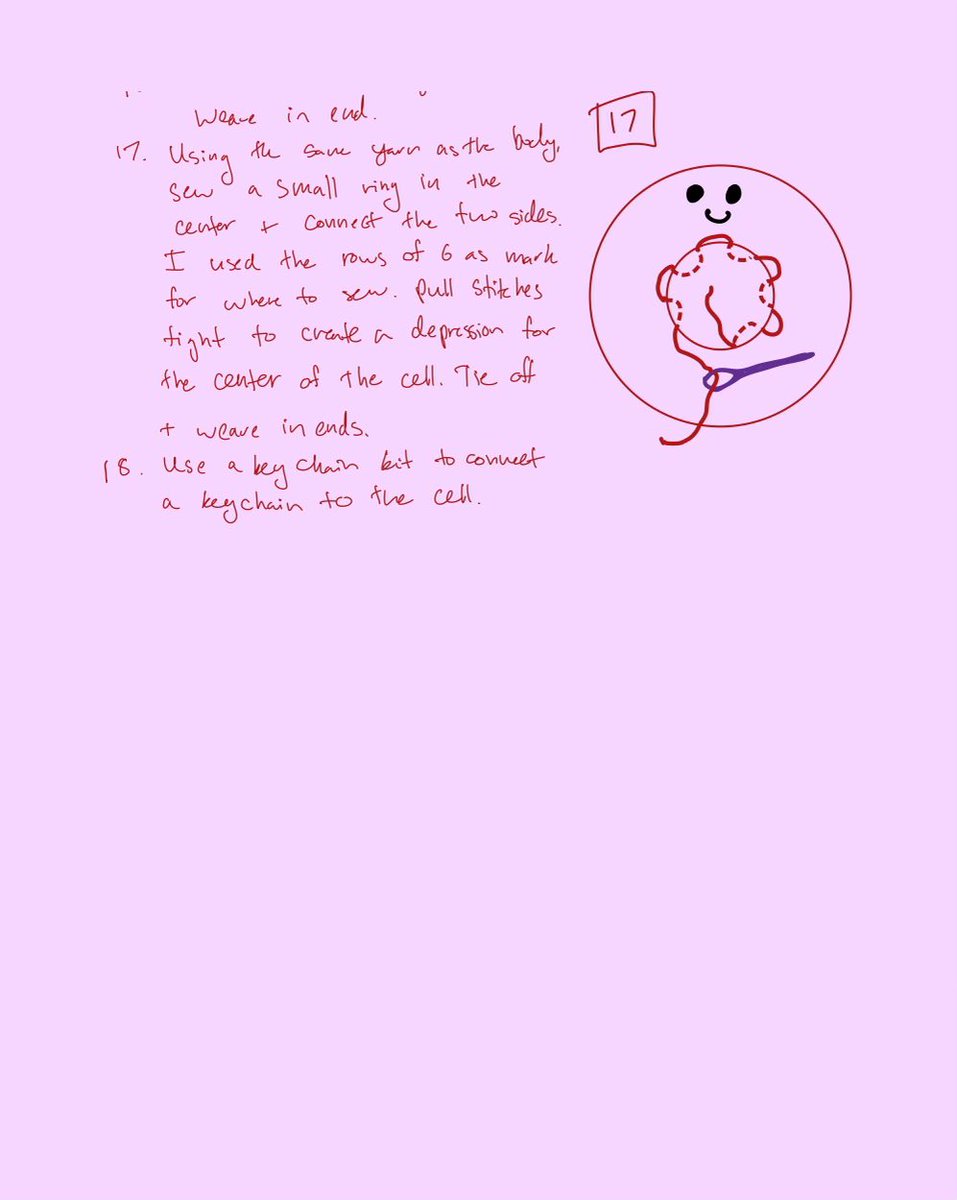 weave in end.
17
17. Using the same yarn as the body,
sew a small ring in the
center + connect the two sides.
I used the rows of 6 as mark
for where to sew. Pull stitches
tight to create a depression for
the center of the cell. Tie off
+ weave in ends.
18. Use a key chain kit to connect
a keychain to the cell.